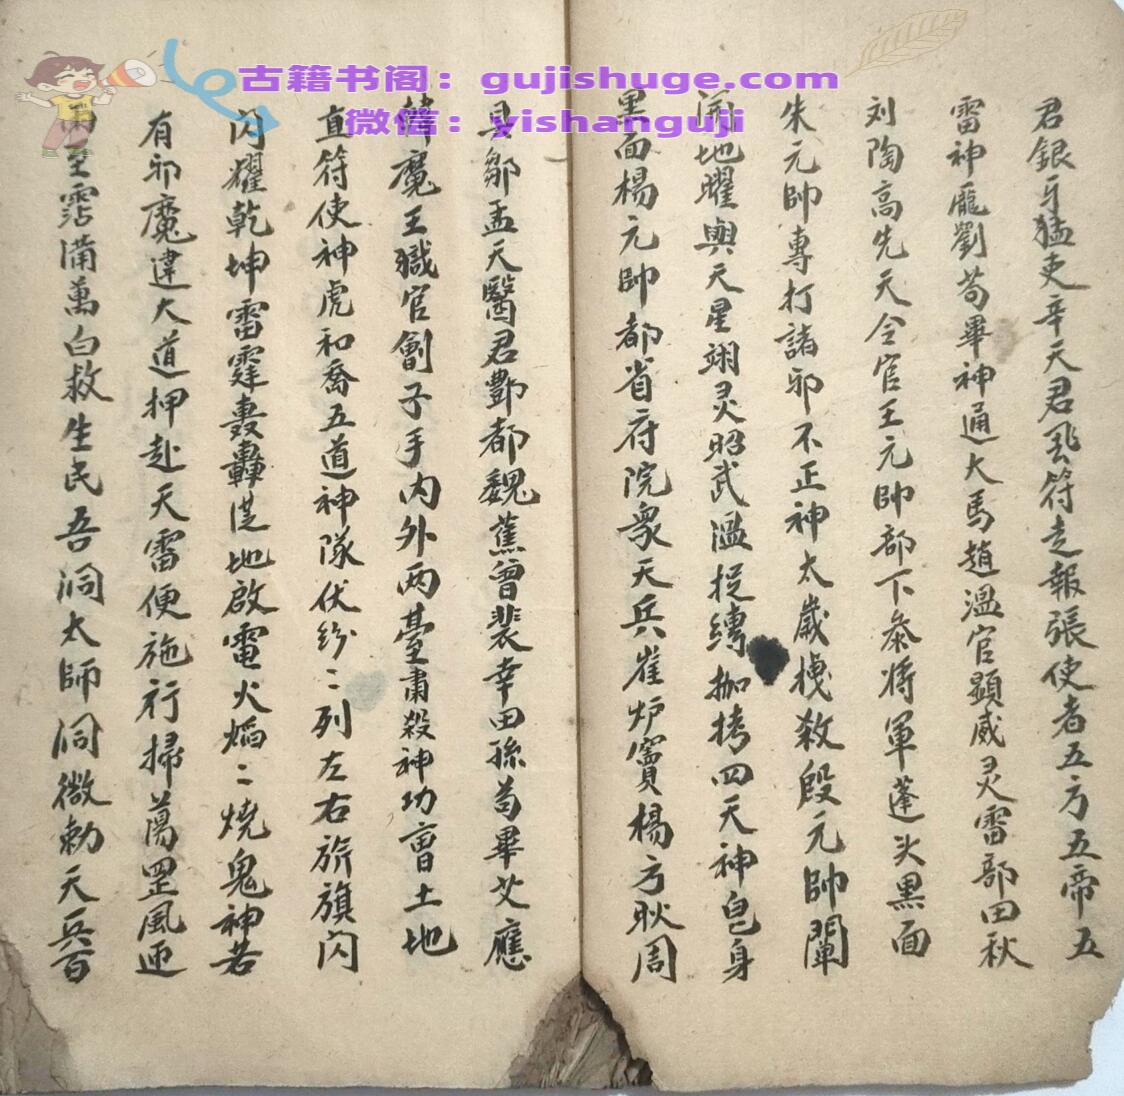 古籍书阁：gujishuge.com
微信：yishanguji
君銀牙猛吏辛天君飛符走報張使者五方五帝五
雷神龐劉苟畢神通大馬趙溫官顯威灵雷部田秋
刘陶高先天令官王元帥部下叅将軍蓬头黑面
朱元帥專打諸邪不正神太歲拽救殷元帥闡
開地曜與天星翊灵昭武溫捉縛枷拷四天神皂身
黑面楊元帥都省府院衆天兵崔炉竇楊方耿周
鄒孟天醫君酆都魏蕉曾裴幸田孫苟畢艾應
魔王職官劊子手内外两臺肅殺神功曹土地
直符使神虎和喬五道神隊伏纷〻列左右旂旗闪
闪耀乾坤雷霆轟轟従地啟電火焰〻燒鬼神若
有邪魔違大道押赴天雷便施行掃蕩罡風迊
霑備萬白救生民吾洞太師洞微勅天兵百